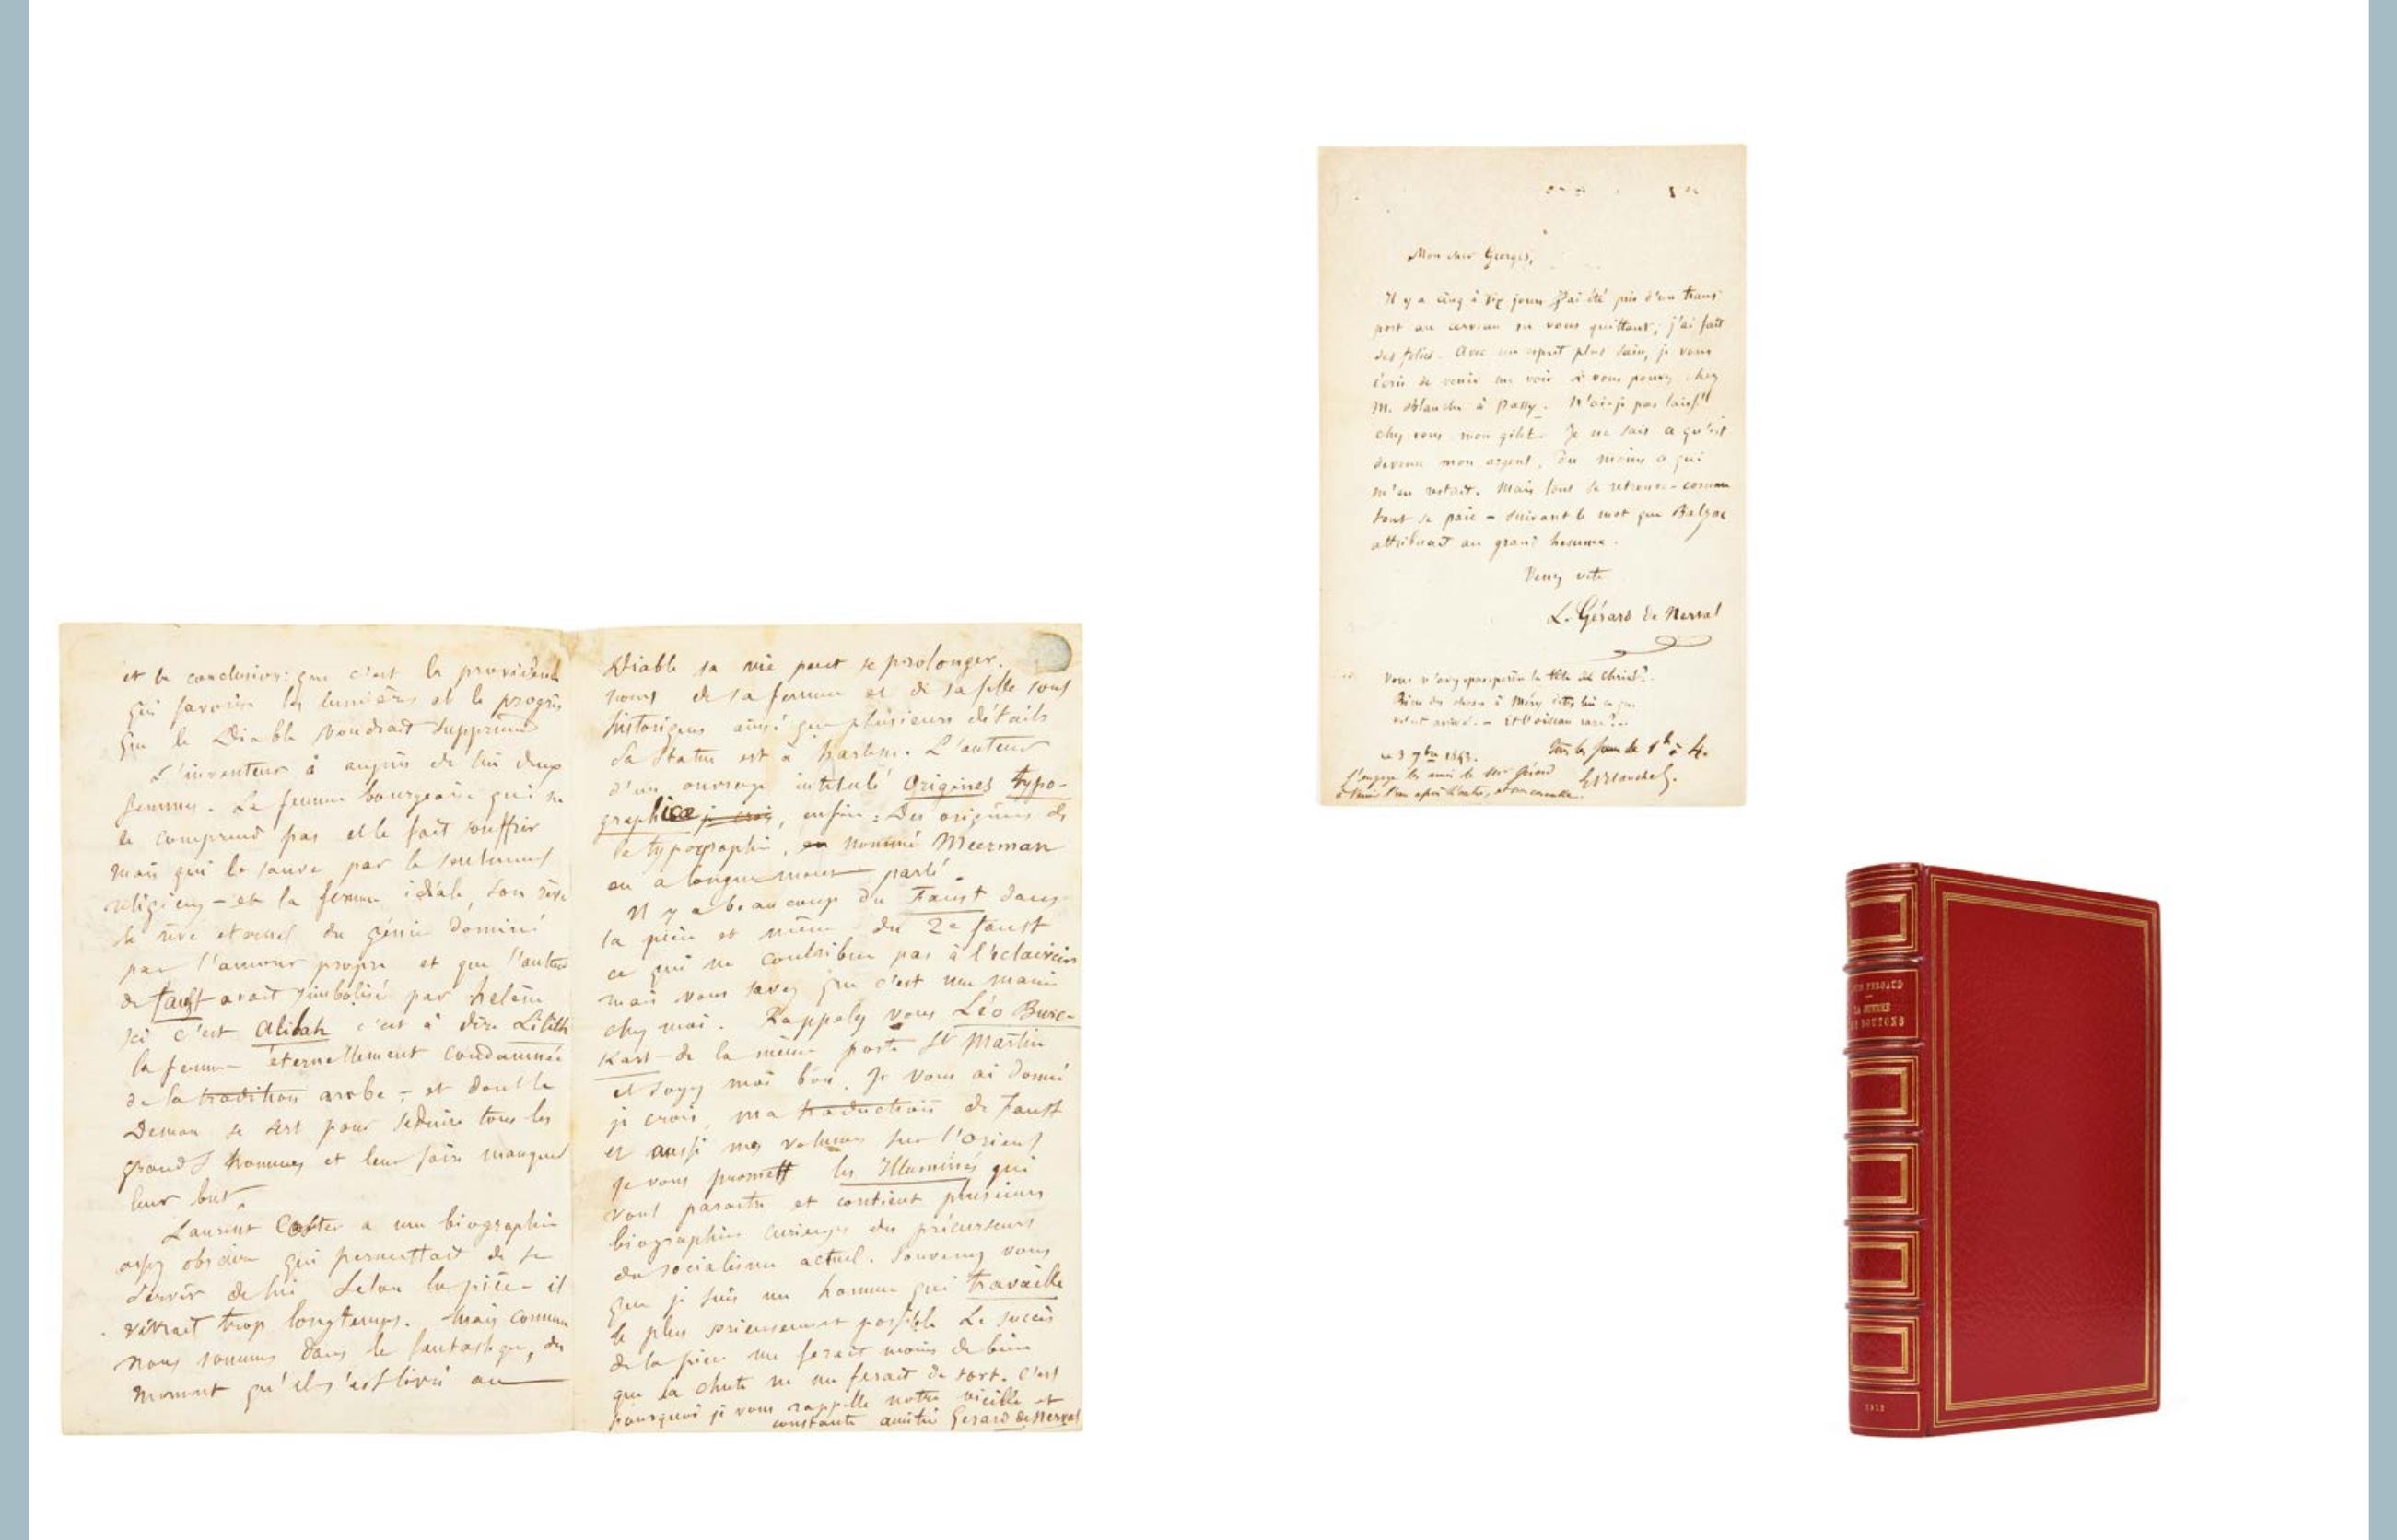 et la conclusion: que c'est la providence
qui favorise les lumières et le progrès
que le Diable voudrait supprimer
L'inventeur a auprès de lui deux
femmes. La femme bourgeoise qui ne
le comprend pas et le fait souffrir
mais qui le sauve par le sentiment
religieux - et la femme idéale, son rêve
le rêve eternel du génie dominé
par l'amour propre et que l'auteur
de faust avait simbolisé par helène
ici c'est Alilah c'est à dire Lilith
la femme éternellement condamnée
de la tradition arabe - et dont le
Demon se sert pour séduire tous les
grands hommes et leur faire manquer
leur but.
Laurent Coster a une biographie
assez obscure qui permettait de se
servir de lui Selon la pièce - il
vivrait trop longtemps. Mais comme
nous sommes dans le fantastique, du
moment qu'il s'est livré au
Diable sa vie peut se prolonger.
noms de sa femme et de sa fille sont
historiques ainsi que plusieurs détails
Sa statue est à harlem. L'auteur
d'un ouvrage intitulé Origines typo-
graphicæ je crois, enfin: Des origines de
la typographie, nommé Meerman
en a longuement parlé.
Il y a beaucoup du Faust dans
la pièce et même du 2e faust
ce qui ne contribue pas à l'éclaircir
mais vous savez que c'est une manie
chez moi. Rappelez vous Léo Burc-
kart de la même porte St Martin
et soyez moi bon. Je vous ai donné
je crois, ma traduction de Faust
et aussi mes volumes sur l'orient
Je vous promets les Illuminés qui
vont paraitre et contient plusieurs
biographies curieuses des précurseurs
du socialisme actuel. Souvenez vous
que je suis un homme qui travaille
le plus sérieusement possible Le succès
de la pièce me ferait moins de bien
que sa chute ne me ferait de tort. C'est
pourquoi je vous rappelle notre vieille et
constante amitié Gerard de Nerval
Mon cher Georges,
Il y a cinq à six jours j'ai été pris d'un trans
port au cerveau en vous quittant; j'ai fait
des folies. Avec un esprit plus sain, je vous
écris de venir me voir si vous pouvez chez
M. Blanche à Passy. N'ai-je pas laissé
chez vous mon gilet. Je ne sais ce qu'est
devenu mon argent, du moins ce qui
m'en restait. Mais tout se retrouve - comme
tout se paie - suivant le mot que Balzac
attribuait au grand homme.
Venez vite
L. Gérard de Nerval
Vous n'avez pas la tête de Christ?
Bien des choses à Méry dites lui ce qui
m'est arrivé. - Et l'oiseau rare?..
ce 3 7bre 1853.
Tous les jours de 1h à 4.
J'engage les amis de Mr Gérard
à venir l'un après l'autre, et non ensemble.
E. Blanche
LOUIS PERGAUD
LA GUERRE
DES BOUTONS
1912